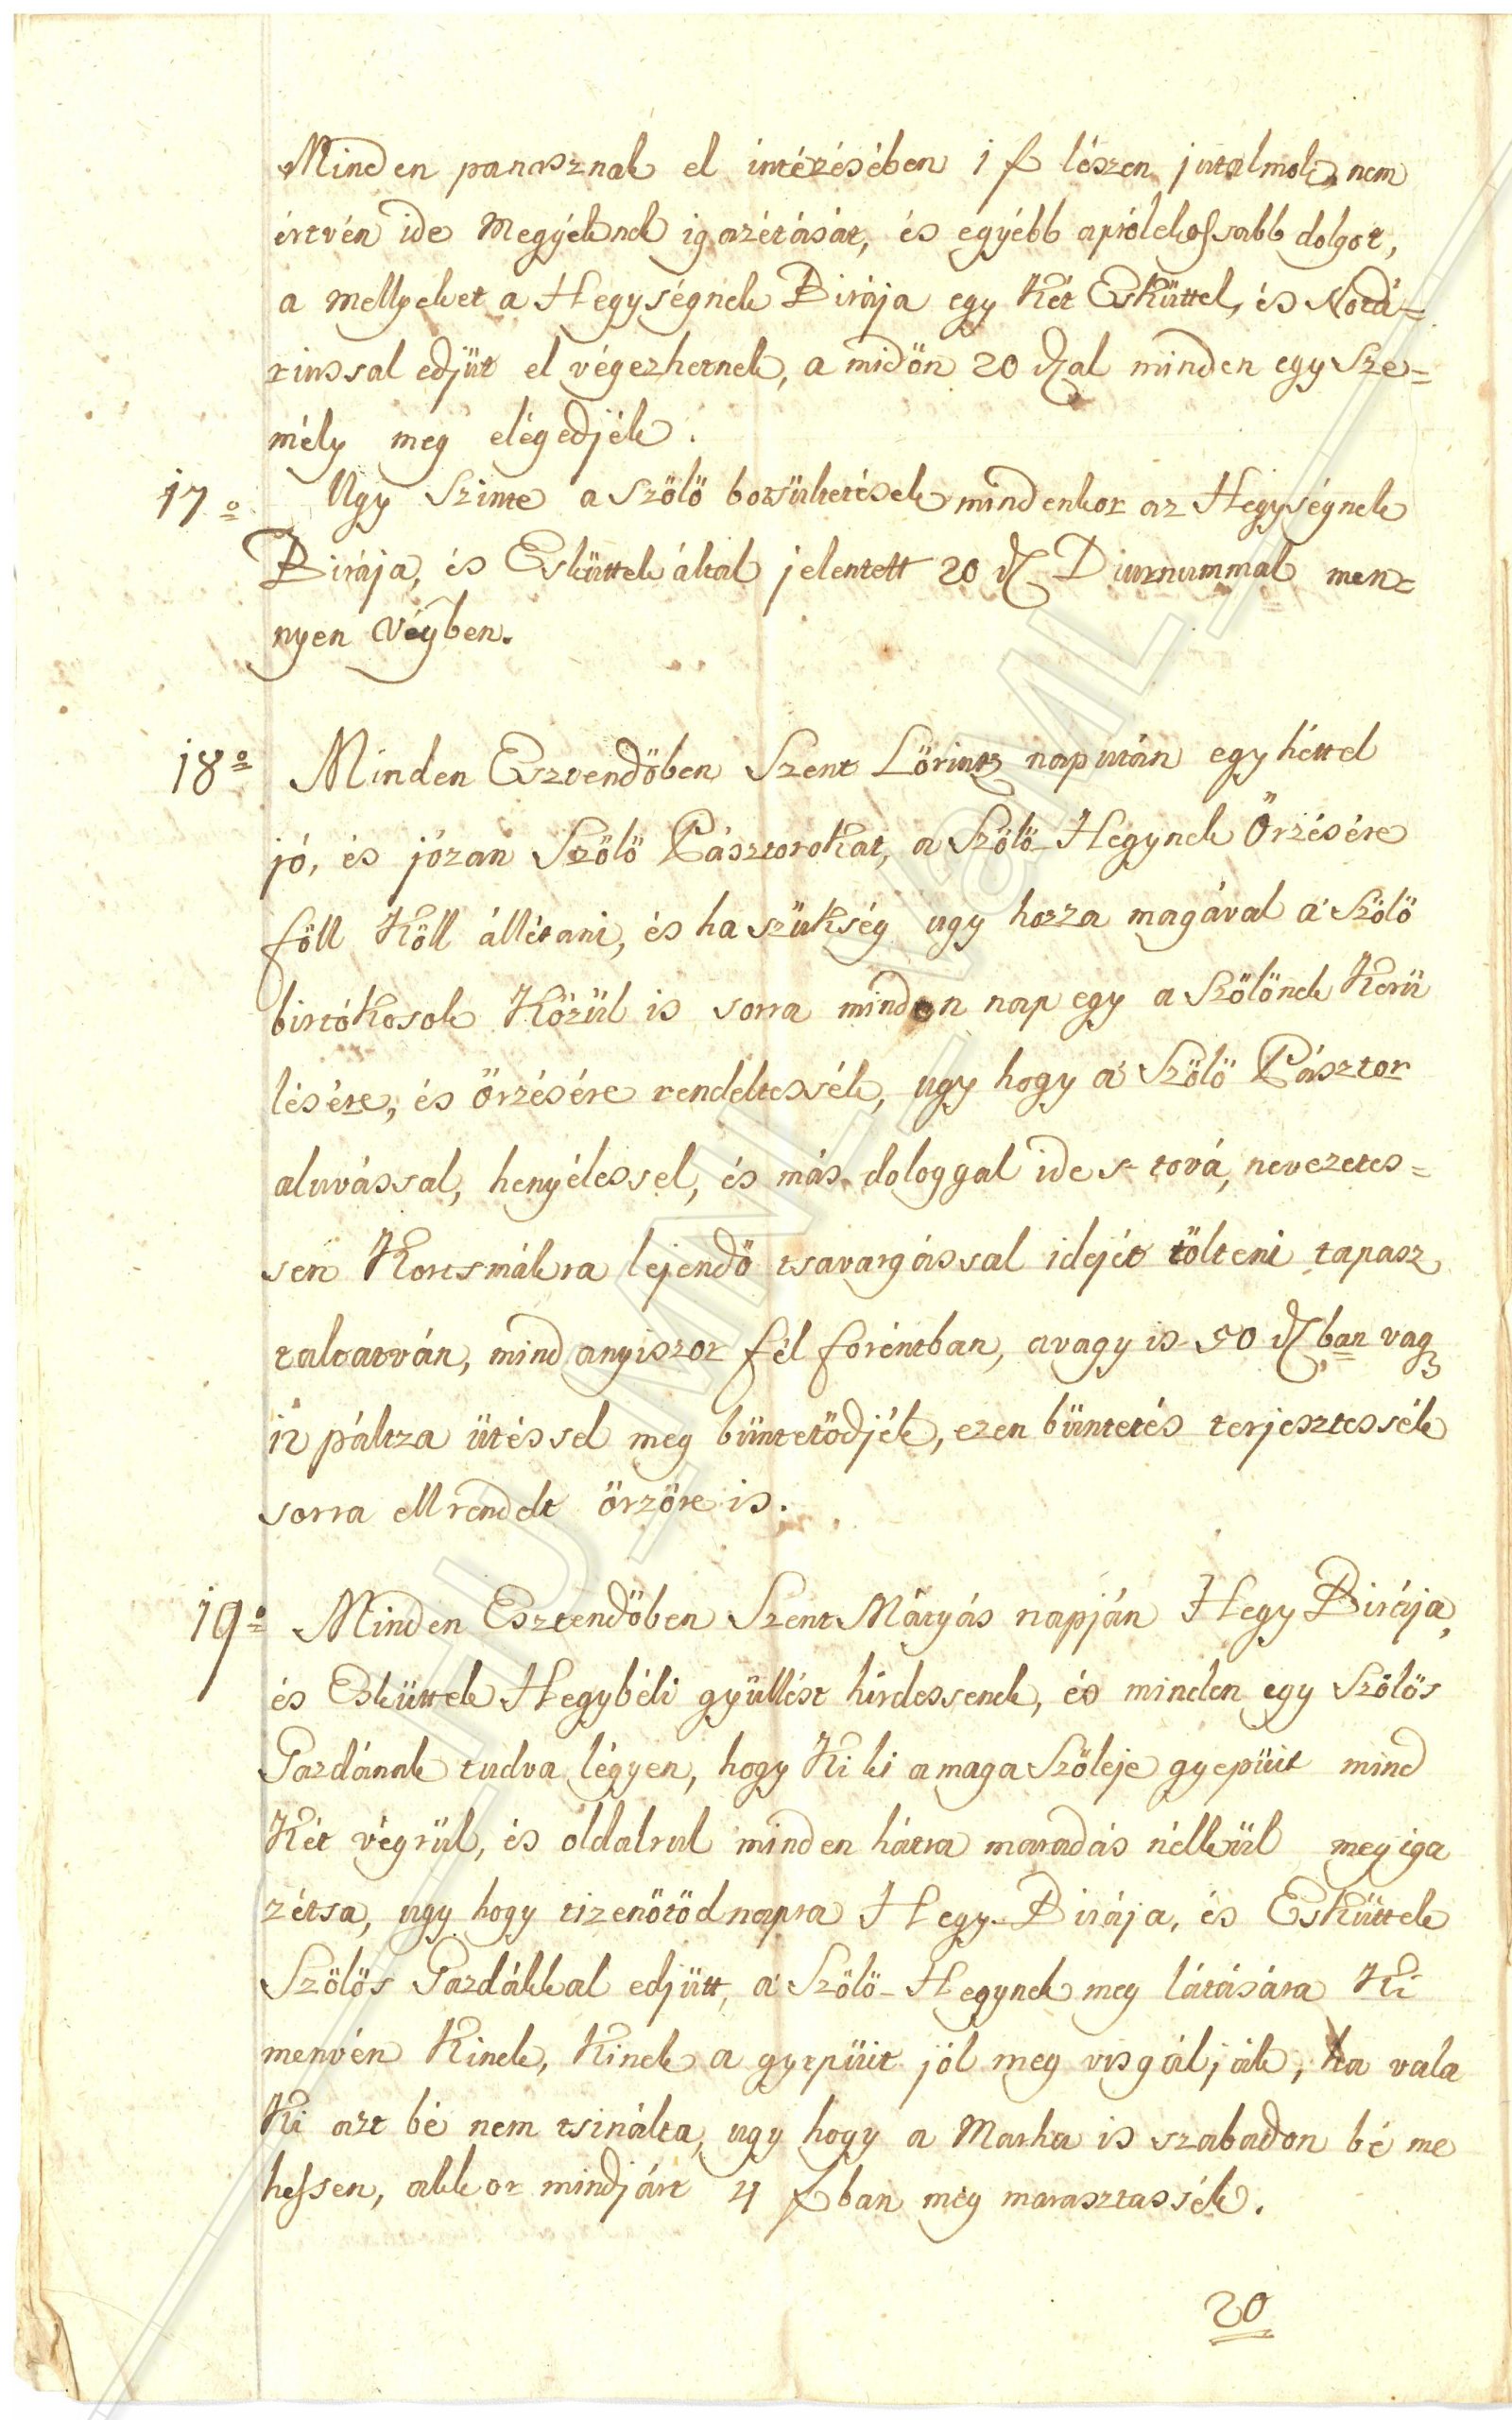 Minden panasznak el intézésében 1 f lészen jutalmok, nem
értvén ide Megyéknek igazétását, és egyébb aprólekossabb dolgot,
a mellyeket a Hegységnek Birája egy két Eskűttel, és Notá=
riussal edjüt el végezhetnek, a midőn 20 dral minden egy Sze=
mély meg elégedjék.
17o Ugy Szinte a Szőlő botsűltetések mindenkor az Hegységnek
Birája, és Eskűttek által jelentett 20 dr Diurnummal men=
nyen végben.
18o Minden Esztendőben Szent Lőrintz nap után egy héttel
jó, és józan Szőlő Pásztorokat, a Szőlő-Hegynek Őrzésére
föll Köll állétani, és ha szükség ugy hozza magával a' Szőlő
birtókosok Közül is sorra minden nap egy a Szőlőnek Kerü
lésére, és őrzésére rendeltessék, ugy hogy a' Szőlő Pásztor
aluvással, henyélessel, és más dologgal ide s tová, nevezetes=
sen Kortsmákra lejendő tsavargással idejét tölteni tapasz
taltatván, mind anyiszor fél foréntban, avagy is 50 dr ban vagy
12 páltza ütéssel meg büntetődjék, ezen büntetés terjesztessék
sorra ell rendelt őrzőre is.
19o Minden Esztendőben Szent Mátyás napján Hegy Birája,
és Esküttek Hegybéli gyüllést hirdessenek, és minden egy Szőlős
Gazdának tudva légyen, hogy Ki ki a maga Szőleje gyepüit mind
Két végrül, és oldalrul minden hátra maradás nélkül meg iga
zétsa, ugy hogy tizenötöd napra Hegy-Birája, és Esküttek
Szőlős Gazdákkal edjütt, a' Szőlő-Hegynek meg látására Ki
menvén Kinek, Kinek a gyepüit jól meg visgálják, ha vala
Ki azt bé nem tsinálta, ugy hogy a Marha is szabadon bé me
hessen, akkor mindjárt 4 fban meg marasztassék.
20